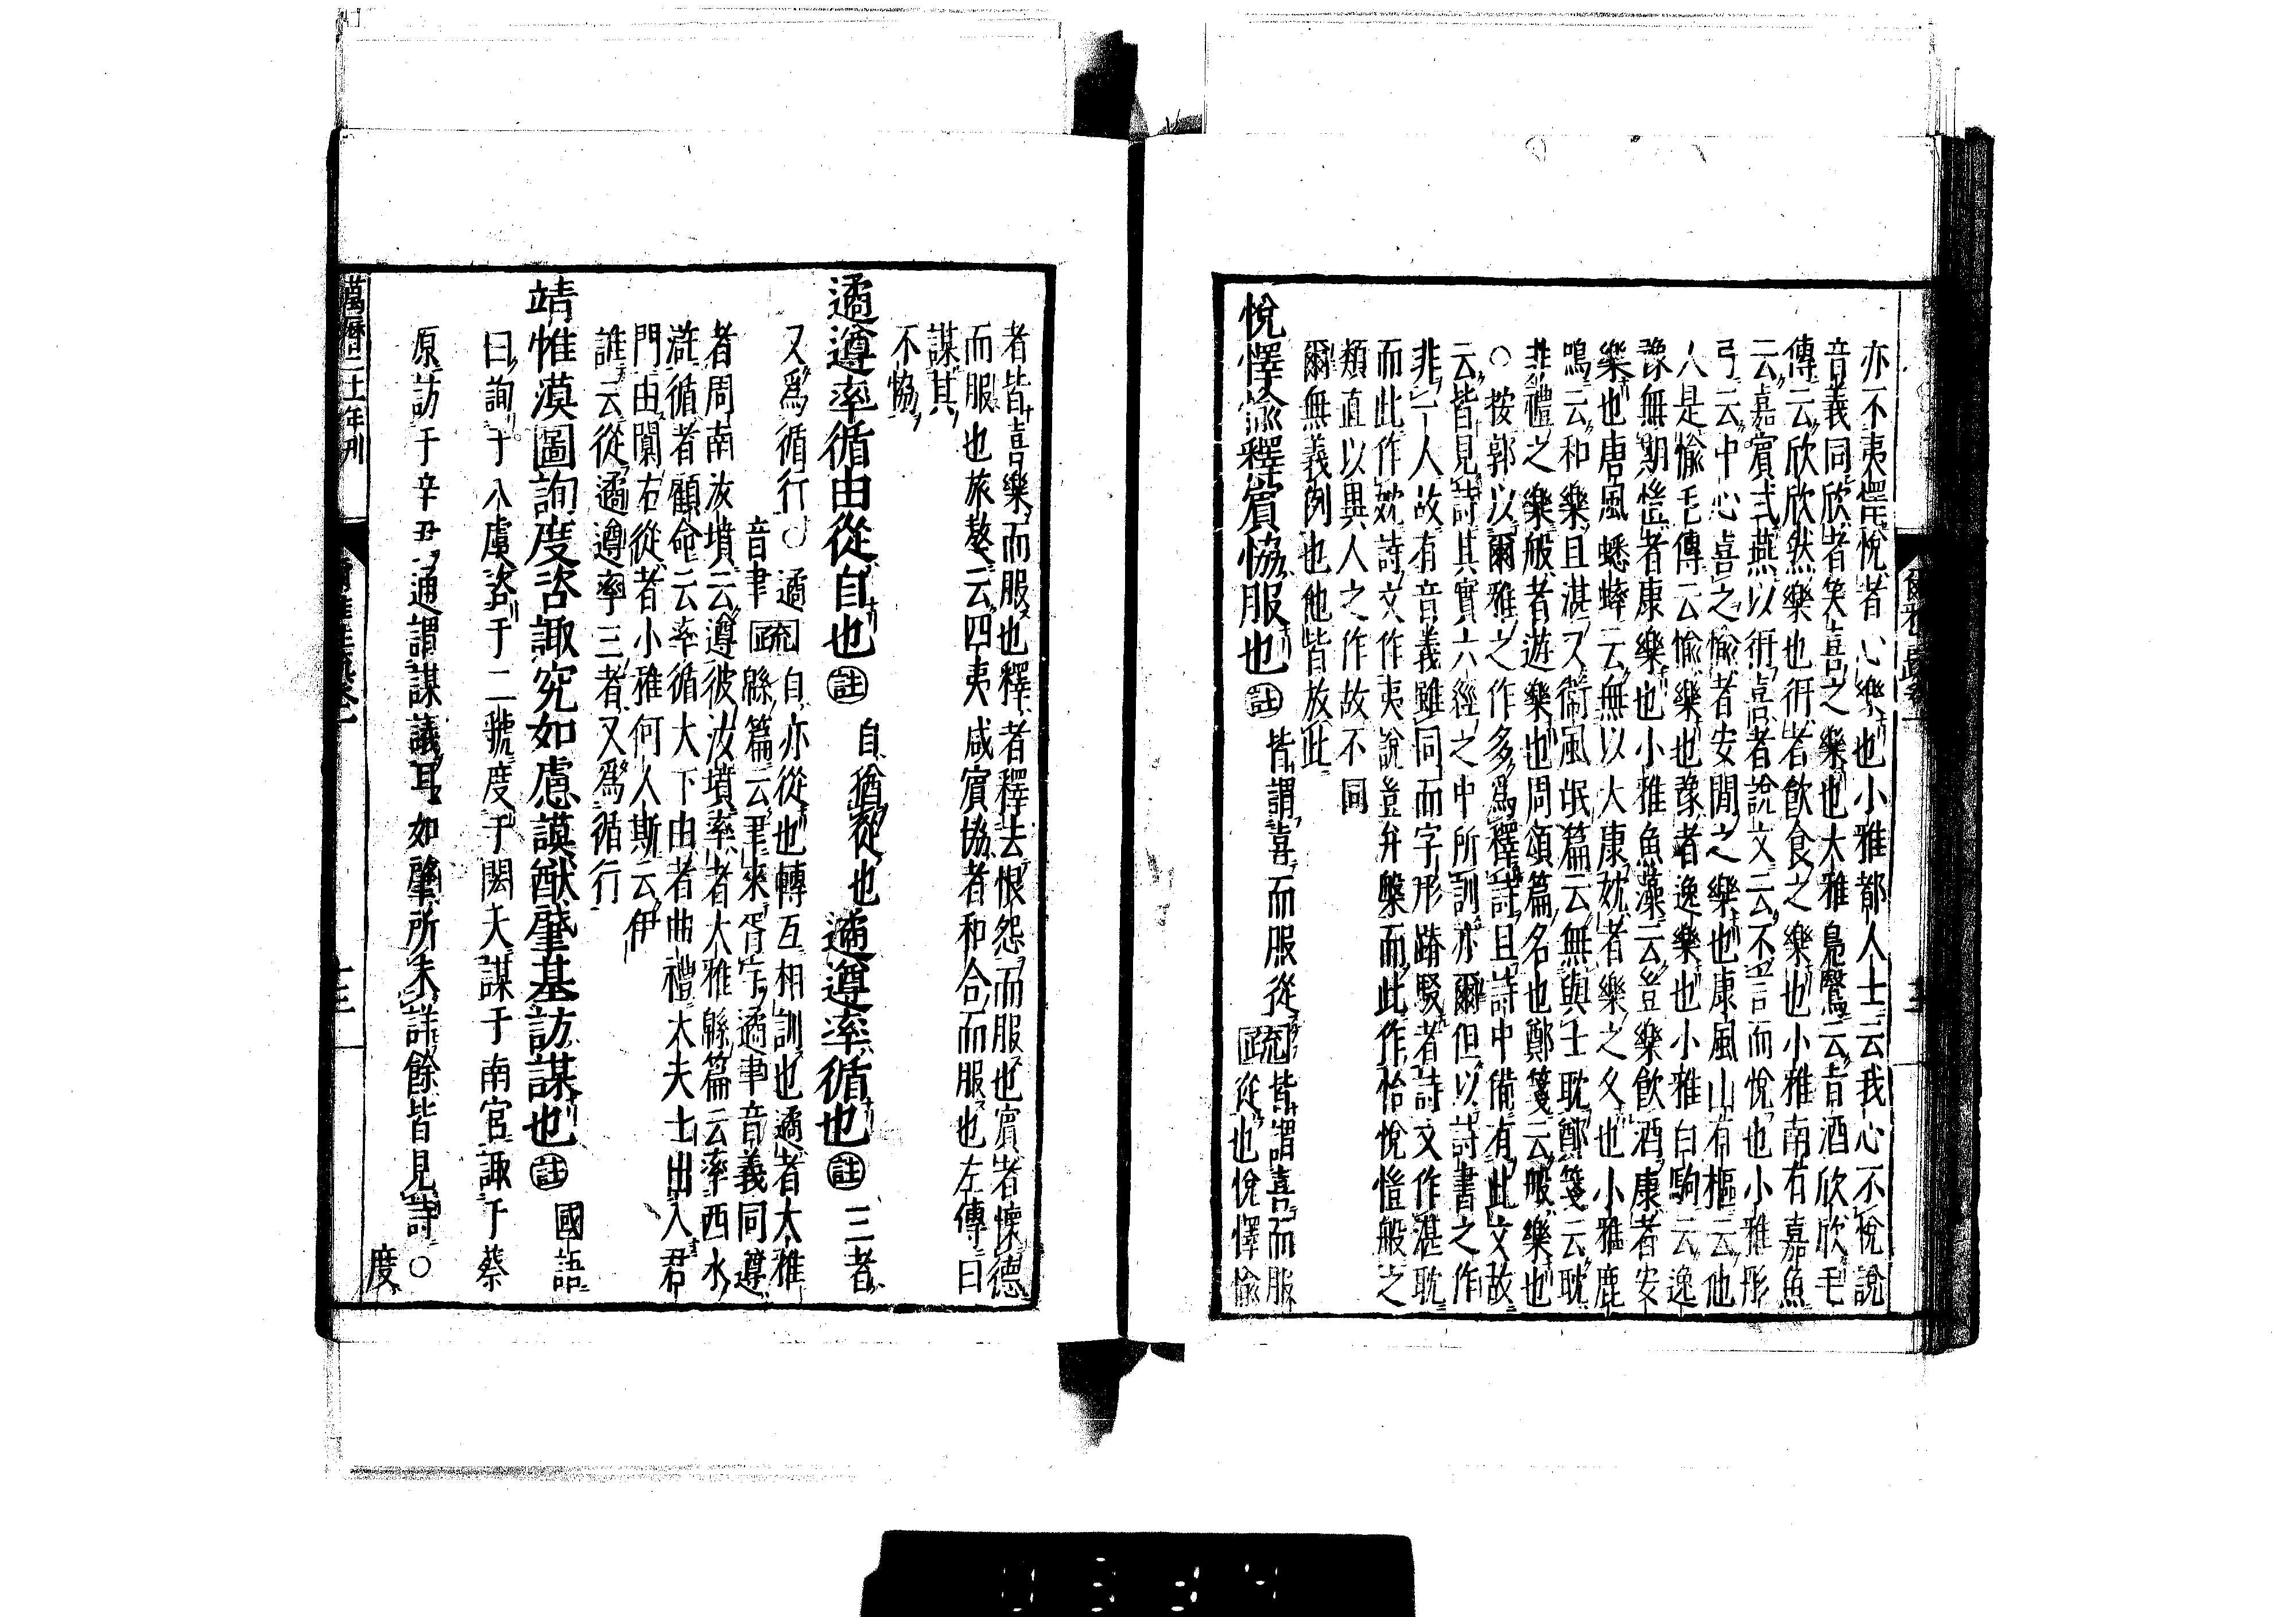 亦不夷懌悅者心樂也小雅都人士云我心不悅說
音義同欣者笑喜之樂也大雅鳧鷖云旨酒欣欣毛
傳云欣欣然樂也衎者飲食之樂也小雅南有嘉魚
云嘉賓式燕以衎喜者說文云不言而悅也小雅彤
弓云中心喜之愉者安閒之樂也唐風山有樞云他
人是愉毛傳云愉樂也豫者逸樂也小雅白駒云逸
豫無期愷者康樂也小雅魚藻云豈樂飲酒康者安
樂也唐風蟋蟀云無以大康妉者樂之久也小雅鹿
鳴云和樂且湛又衛風氓篇云無與士耽鄭箋云耽
非禮之樂般者遊樂也周頌篇名也鄭箋云般樂也
○按郭以爾雅之作多爲釋詩且詩中備有此文故
云皆見詩其實六經之中所訓亦爾但以詩書之作
非一人故有音義雖同而字形踳駁者詩文作湛耽
而此作妉詩文作夷說豈弁槃而此作怡悅愷般之
類直以異人之作故不同
爾無義例也他皆放此
悅懌愉釋賓協服也 註 皆謂喜而服從 疏 皆謂喜而服
從也悅懌愉
者皆喜樂而服也釋者釋去恨怨而服也賓者懷德
而服也旅獒云四夷咸賓協者和合而服也左傳曰
謀其
不協
遹遵率循由從自也 註 自猶從也 遹遵率循也 註 三者
又爲循行○遹
音聿 疏 自亦從也轉互相訓也遹者大雅
緜篇云聿來胥宇遹聿音義同遵
者周南汝墳云遵彼汝墳率者大雅緜篇云率西水
滸循者顧命云率循大下由者曲禮大夫士出入君
門由闑右從者小雅何人斯云伊
誰云從遹遵率三者又爲循行
靖惟漠圖詢度咨諏究如慮謨猷肇基訪謀也 註 國語
曰詢于八虞咨于二虢度于閎夭謀于南宮諏于蔡
原訪于辛尹通謂謀議耳如肇所未詳餘皆見詩○
度